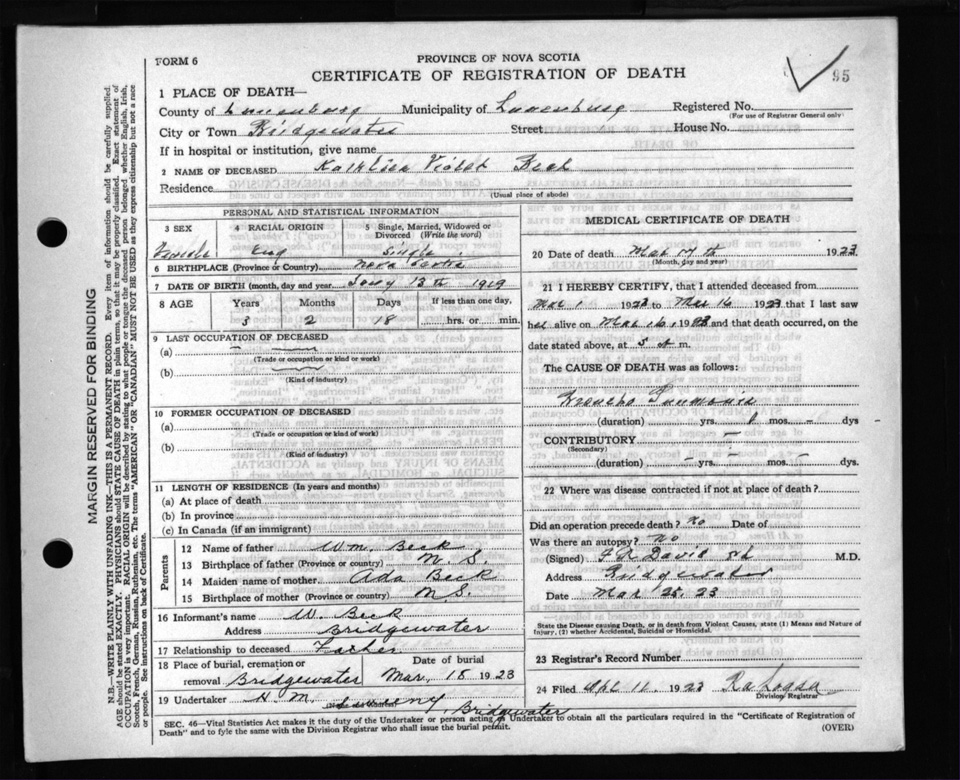 FORM 6
PROVINCE OF NOVA SCOTIA
CERTIFICATE OF REGISTRATION OF DEATH
95
1 PLACE OF DEATH—
County of Lunenburg Municipality of Lunenburg Registered No.
(For use of Registrar General only)
City or Town Bridgewater Street House No.
If in hospital or institution, give name
2 NAME OF DECEASED Kathleen Violet Beck
Residence
(Usual place of abode)
PERSONAL AND STATISTICAL INFORMATION
3 SEX 4 RACIAL ORIGIN 5 Single, Married, Widowed or Divorced (Write the word)
Female Eng Single
6 BIRTHPLACE (Province or Country) Nova Scotia
7 DATE OF BIRTH (month, day and year) 13th 1919
8 AGE Years Months Days If less than one day,
3 2 18 hrs. or min.
9 LAST OCCUPATION OF DECEASED
(a)
(Trade or occupation or kind of work)
(b)
(Kind of industry)
10 FORMER OCCUPATION OF DECEASED
(a)
(Trade or occupation or kind of work)
(b)
(Kind of industry)
11 LENGTH OF RESIDENCE (In years and months)
(a) At place of death
(b) In province
(c) In Canada (if an immigrant)
Parents
12 Name of father Wm. Beck
13 Birthplace of father (Province or country) N. S.
14 Maiden name of mother Ada Beck
15 Birthplace of mother (Province or country) N. S.
16 Informant's name W. Beck
Address Bridgewater
17 Relationship to deceased Father
18 Place of burial, cremation or removal Bridgewater Date of burial Mar. 18 1923
19 Undertaker H. M. Bridgewater
MEDICAL CERTIFICATE OF DEATH
20 Date of death Mar 17th 1923
(Month, day and year)
21 I HEREBY CERTIFY, that I attended deceased from
Mar 1 1923 to Mar 16 1923 that I last saw
her alive on Mar 16, 1923 and that death occurred, on the
date stated above, at 5 a m.
The CAUSE OF DEATH was as follows:
Broncho Pneumonia
(duration) yrs. mos. dys
CONTRIBUTORY
(Secondary)
(duration) yrs. mos. dys.
22 Where was disease contracted if not at place of death?
Did an operation precede death? No Date of
Was there an autopsy? No
(Signed) Davis M.D.
Address Bridgewater
Date Mar 25 23
State the Disease causing Death, or in death from Violent Causes, state (1) Means and Nature of Injury, (2) whether Accidental, Suicidal or Homicidal.
23 Registrar's Record Number
24 Filed Apl 11 1923
Division Registrar
SEC. 46—Vital Statistics Act makes it the duty of the Undertaker or person acting as Undertaker to obtain all the particulars required in the "Certificate of Registration of
Death" and to fyle the same with the Division Registrar who shall issue the burial permit.
(OVER)
MARGIN RESERVED FOR BINDING
N.B.—WRITE PLAINLY, WITH UNFADING INK—THIS IS A PERMANENT RECORD. Every item of information should be carefully supplied.
AGE should be stated EXACTLY. PHYSICIANS should STATE CAUSE OF DEATH in plain terms, so that it may be properly classified. Exact statement of
OCCUPATION is very important. RACIAL ORIGIN will be described by stating to what people or tongue the deceased person belonged whether English, Irish,
Scotch, French, German, Russian, Ruthenian, etc. The terms "AMERICAN" OR "CANADIAN" MUST NOT BE USED as they express citizenship but not a race
or people. See instructions on back of Certificate.